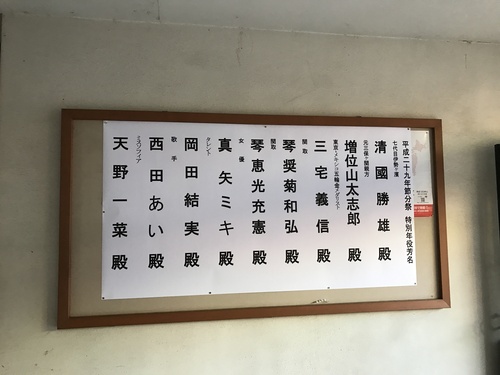 平成二十九年節分祭 特別年役芳名
七代目伊勢ヶ濱
清國勝雄 殿
元三保ヶ関親方
増位山太志郎 殿
東京・メキシコ五輪金メダリスト
三宅義信 殿
関取
琴奨菊和弘 殿
関取
琴恵光充憲 殿
女優
真矢ミキ 殿
タレント
岡田結実 殿
歌手
西田あい 殿
ミスソフィア
天野一菜 殿